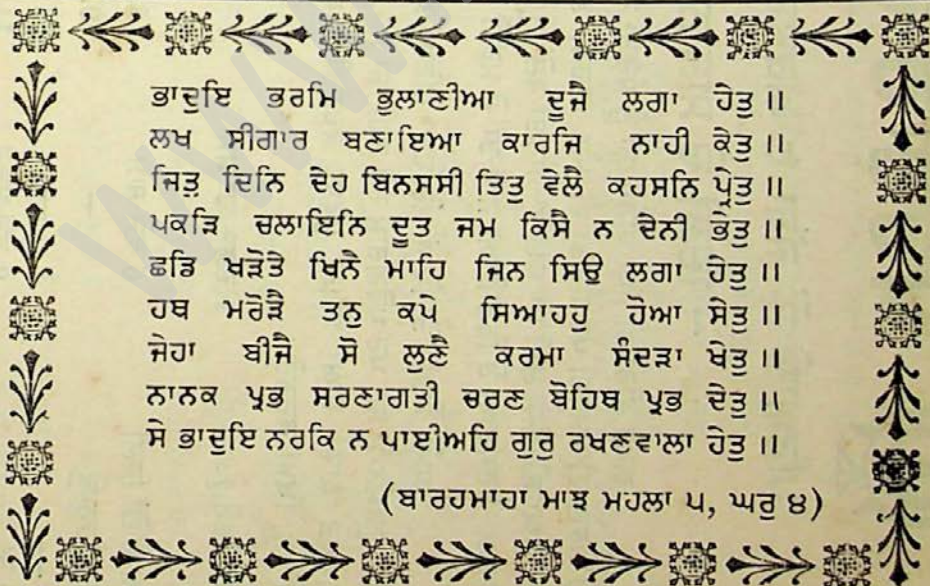 ਭਾਦੁਇ ਭਰਮਿ ਭੁਲਾਣੀਆ ਦੂਜੈ ਲਗਾ ਹੇਤੁ ॥
ਲਖ ਸੀਗਾਰ ਬਣਾਇਆ ਕਾਰਜਿ ਨਾਹੀ ਕੇਤੁ ॥
ਜਿਤੁ ਦਿਨਿ ਦੇਹ ਬਿਨਸਸੀ ਤਿਤੁ ਵੇਲੈ ਕਹਸਨਿ ਪ੍ਰੇਤੁ ॥
ਪਕੜਿ ਚਲਾਇਨਿ ਦੂਤ ਜਮ ਕਿਸੈ ਨ ਦੇਨੀ ਭੇਤੁ ॥
ਛਡਿ ਖੜੋਤੇ ਖਿਨੈ ਮਾਹਿ ਜਿਨ ਸਿਉ ਲਗਾ ਹੇਤੁ ॥
ਹਥ ਮਰੋੜੈ ਤਨੁ ਕਪੇ ਸਿਆਹਹੁ ਹੋਆ ਸੇਤੁ ॥
ਜੇਹਾ ਬੀਜੈ ਸੋ ਲੁਣੈ ਕਰਮਾ ਸੰਦੜਾ ਖੇਤੁ ॥
ਨਾਨਕ ਪ੍ਰਭ ਸਰਣਾਗਤੀ ਚਰਣ ਬੋਹਿਥ ਪ੍ਰਭ ਦੇਤੁ ॥
ਸੇ ਭਾਦੁਇ ਨਰਕਿ ਨ ਪਾਈਅਹਿ ਗੁਰੁ ਰਖਣਵਾਲਾ ਹੇਤੁ ॥
(ਬਾਰਹਮਾਹਾ ਮਾਝ ਮਹਲਾ ੫, ਘਰੁ ੪)